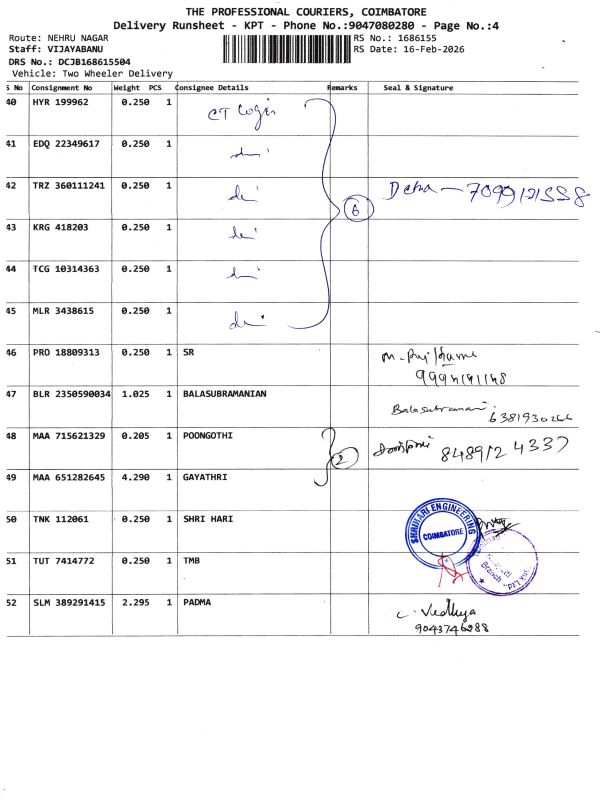 THE PROFESSIONAL COURIERS, COIMBATORE
Delivery Runsheet - KPT - Phone No.:9047080280 - Page No.:4
Route: NEHRU NAGAR
RS No.: 1686155
Staff: VIJAYABANU
RS Date: 16-Feb-2026
DRS No.: DCJB168615504
Vehicle: Two Wheeler Delivery
S No Consignment No Weight PCS Consignee Details Remarks Seal & Signature
40 HYR 199962 0.250 1 CT Login
41 EDQ 22349617 0.250 1
42 TRZ 360111241 0.250 1 6
43 KRG 418203 0.250 1
44 TCG 10314363 0.250 1
45 MLR 3438615 0.250 1
46 PRO 18809313 0.250 1 SR
47 BLR 2350590034 1.025 1 BALASUBRAMANIAN Balasubramani
48 MAA 715621329 0.205 1 POONGOTHI 2
49 MAA 651282645 4.290 1 GAYATHRI
50 TNK 112061 0.250 1 SHRI HARI SHRIHARI ENGINEERING COIMBATORE
51 TUT 7414772 0.250 1 TMB Branch
52 SLM 389291415 2.295 1 PADMA C. Vedhya
9043746288